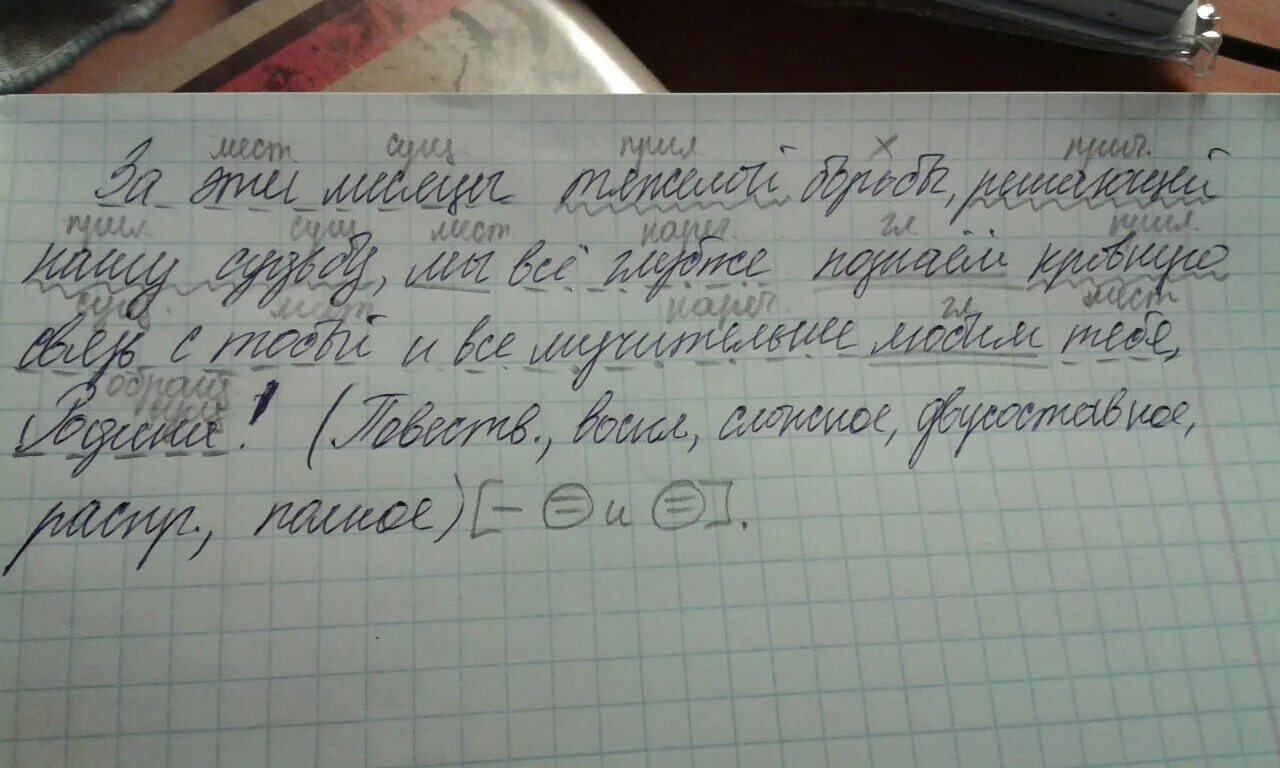 мест. сущ. прил. х прич.
За эти месяцы тяжелой борьбы, решающей
прил. сущ. мест нареч. гл прил.
нашу судьбу, мы всё глубже познаём кровную
сущ. мест нареч. гл. мест
связь с тобый и все мучительнее любим тебя,
обращ.
сущ
Родина! (Повеств., воскл, сложное, двусоставное,
распр., полное) [– = и =].